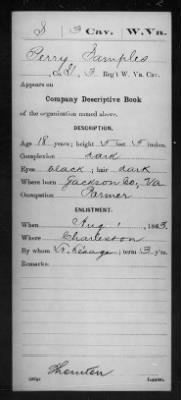 S 3 Cav. W. Va.
Perry Samples
Co. 3 Reg't W. Va. Cav.
Appears on
Company Descriptive Book
of the organization named above.
DESCRIPTION.
Age 18 years; height 5 feet 5 inches.
Complexion dark
Eyes black; hair dark
Where born Jackson Co, Va
Occupation Farmer
ENLISTMENT.
When Aug 1, 1863.
Where Charleston
By whom ; term 3 y'rs.
Remarks: